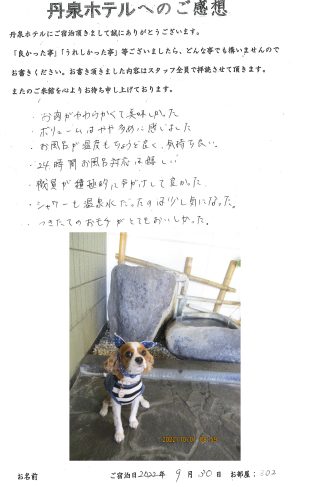 丹泉ホテルへのご感想
丹泉ホテルにご宿泊頂きまして誠にありがとうございます。
「良かった事」「うれしかった事」等ございましたら、どんな事でも構いませんので
お書きください。お書き頂きました内容はスタッフ全員で拝読させて頂きます。
またのご来館を心よりお待ち申し上げております。
・お肉がやわらかくて美味しかった
・ボリュームはやや多めに感じました
・お風呂が温度もちょうど良く、気持ち良い。
・24時間お風呂対応は嬉しい
・職員が積極的に
良かった
・シャワーも温泉水だったのは少し気になった。
・つきたてのおもちがとてもおいしかった。
2022/10/01
お名前
ご宿泊日 2022年 9月 30日 お部屋：302